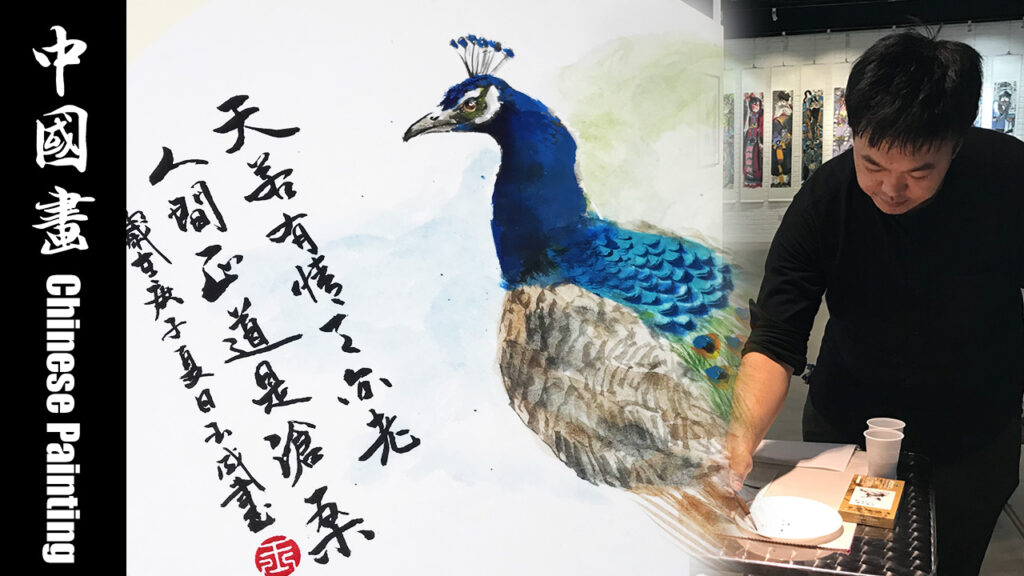 中國畫
Chinese Painting
天若有情天亦老
人間正道是滄桑
歲在庚子夏日成畫